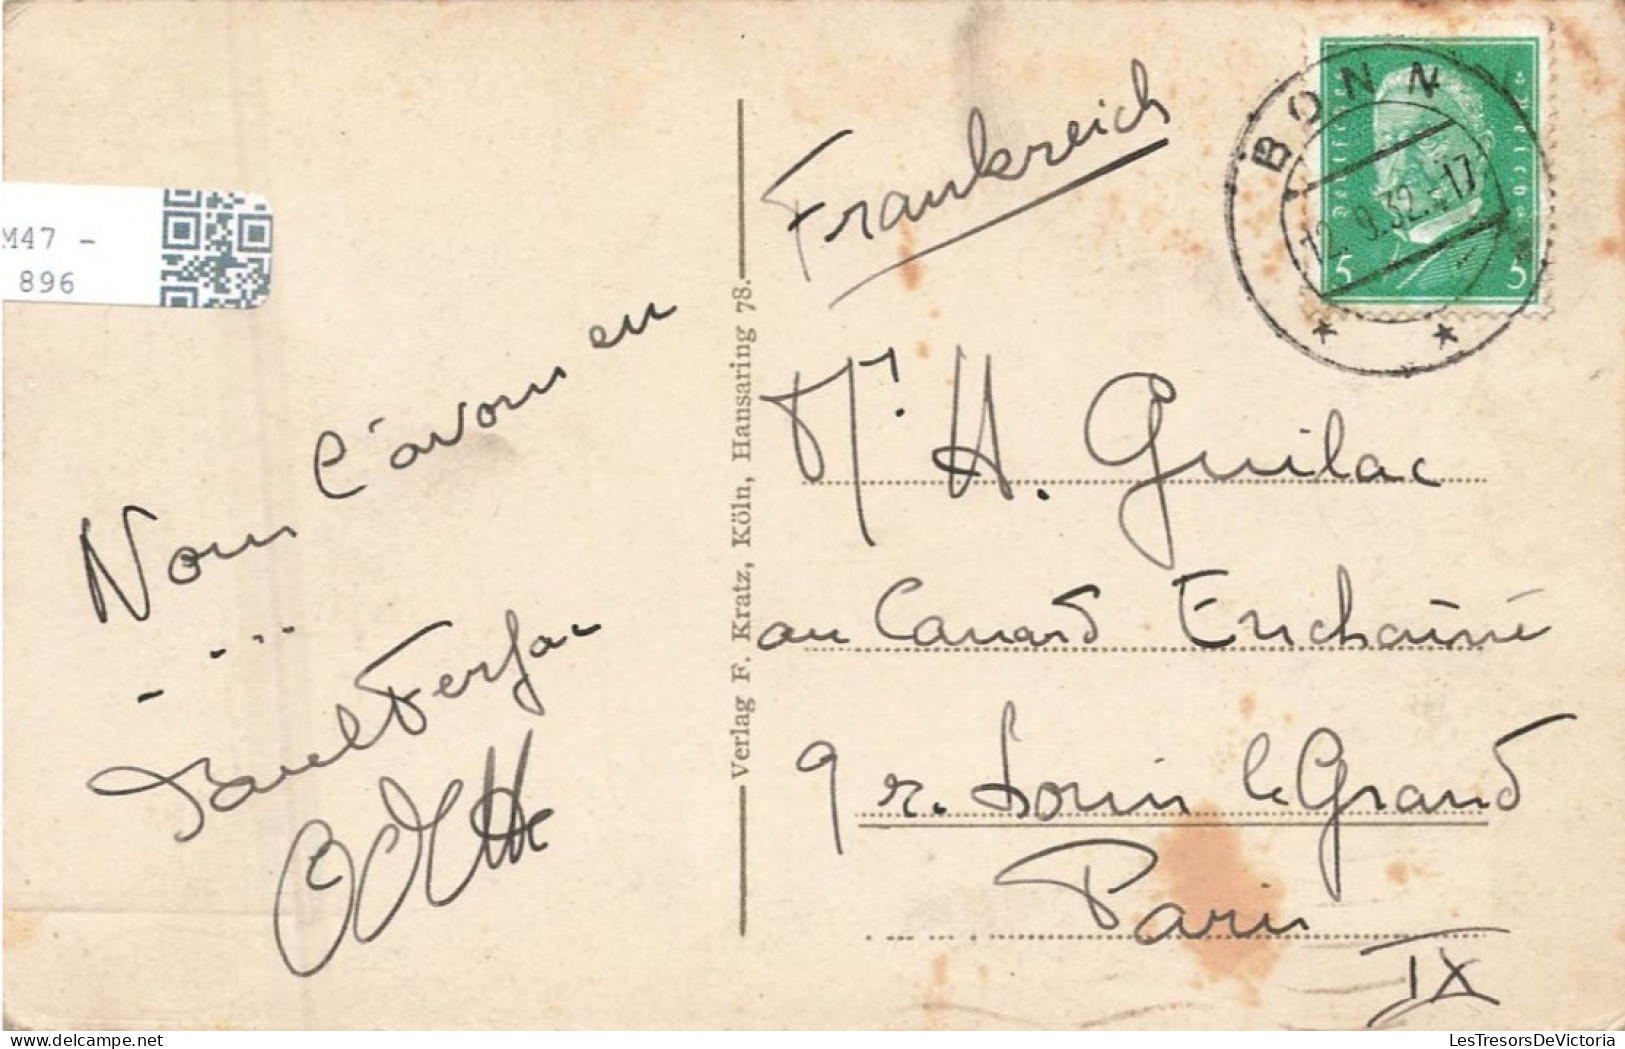 M47 -
896
Nous l'avons eu
....
Paul Ferjac
Verlag F. Kratz, Köln, Hansaring 78.
Frankreich
BONN
12.9.32.17
Deutsches Reich
5 5
Mr. H. Guilac
au Canard Enchaîné
9 r. Louis le Grand
Paris
IX
LesTresorsDeVictoria